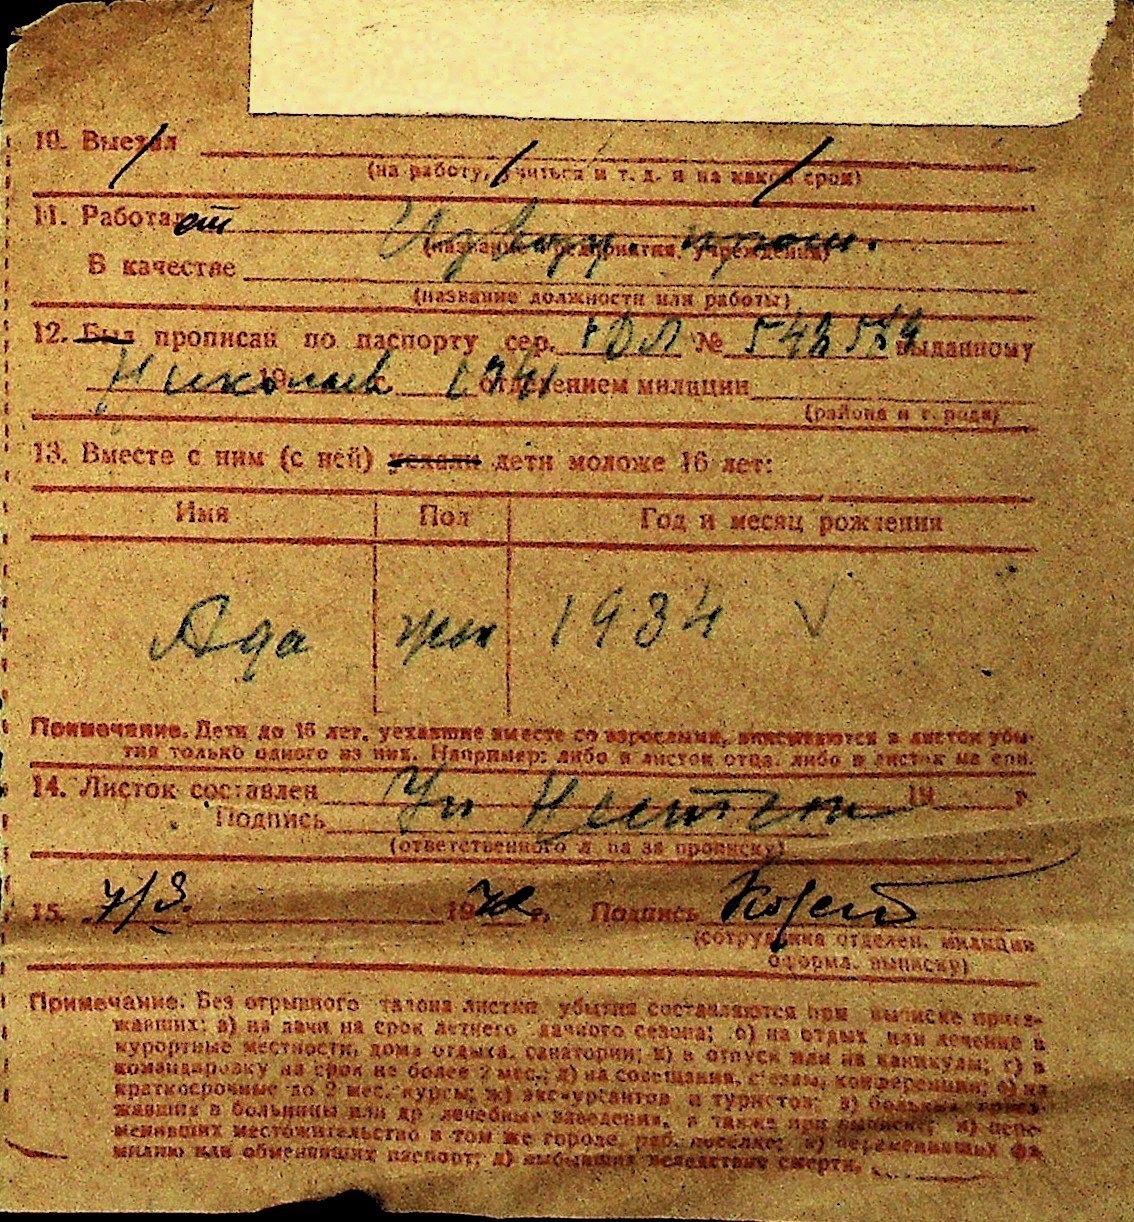 10. Выехал
(на работу, учиться и т. д. и на какой срок)
11. Работает
(название предприятия, учреждения)
В качестве
(название должности или работы)
12. Был прописан по паспорту сер. № 542584 выданному
Николаев 19 г. отделением милиции
(района и города)
13. Вместе с ним (с ней) уехали дети моложе 16 лет:
Имя Пол Год и месяц рождения
Ада жен 1934
Примечание. Дети до 16 лет, уехавшие вместе со взрослыми, вписываются в листок убы-
тия только одного из них. Например: либо в листок отца, либо в листок матери.
14. Листок составлен 19 г
Подпись
(ответственного лица за прописку)
15. 7/3 19 г. Подпись
(сотрудника отделен. милиции
оформл. выписку)
Примечание. Без отрывного талона листки убытия составляются при выписке приез-
жавших: а) на дачи на срок летнего дачного сезона; б) на отдых или лечение в
курортные местности, дома отдыха, санатории; в) в отпуск или на каникулы; г) в
командировку на срок не более 2 мес.; д) на совещания, съезды, конференции; е) на
краткосрочные до 2 мес. курсы; ж) экскурсантов и туристов; з) больных приез-
жавших в больницы или др лечебные заведения, а также при выписке; и) пере-
менивших местожительство в том же городе, раб. поселке; к) переменивших фа-
милию или обменивших паспорт; л) выбывших вследствие смерти.